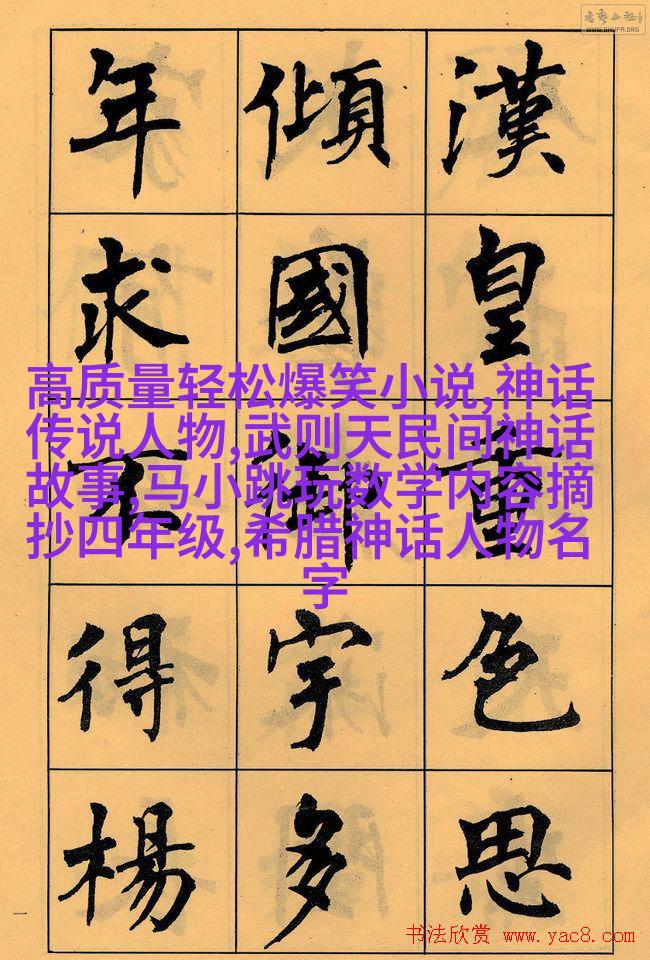 漢皇重色思
傾國御宇多
年求不得楊
高质量轻松爆笑小说,神话
传说人物,武则天民间神话
故事,马小跳玩数学内容摘
抄四年级,希腊神话人物名
字
一
书艺公社
WWW.SHUFA.ORG
书法欣赏 www.yac8.com